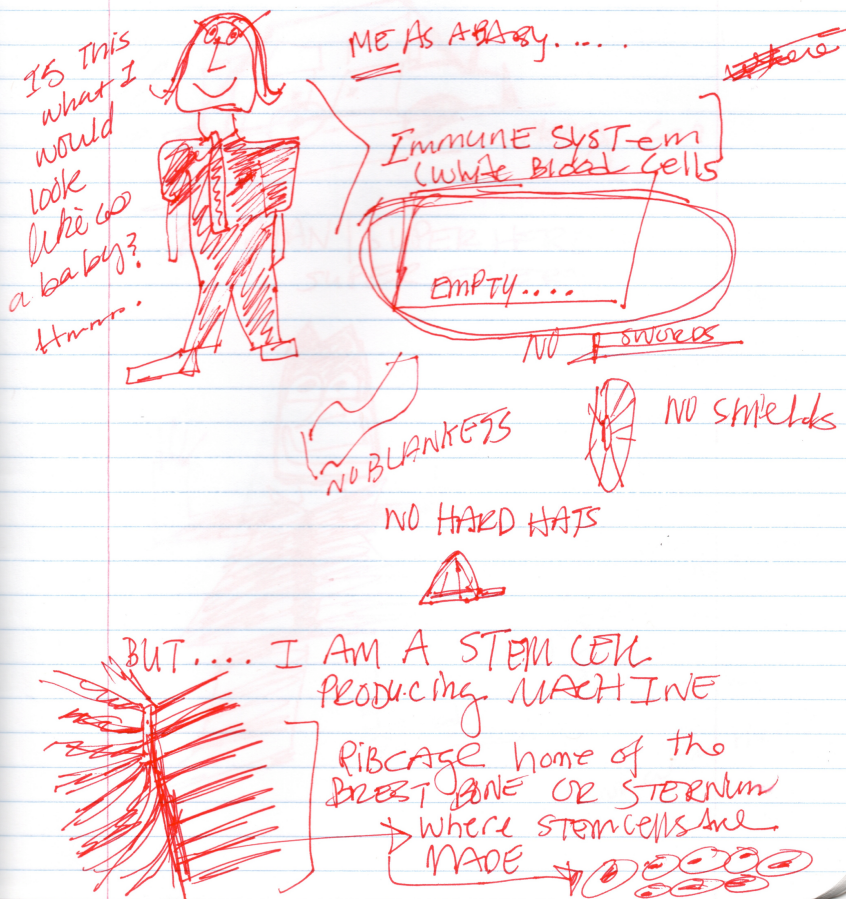 IS This
what I
would
look
like as
a baby?
Hmmm.
ME AS A BABY.....
ImmunE SYSTEm
(White Blood Cells
EMPTY....
NO SWORDS
NO BLANKETS
NO SHIELDS
NO HARD HATS
BUT.... I AM A STEM CELL
PRODUCING MACHINE
RIBCAGE home of the
BREST BONE OR STERNUM
where STEMCELLS ARE
MADE